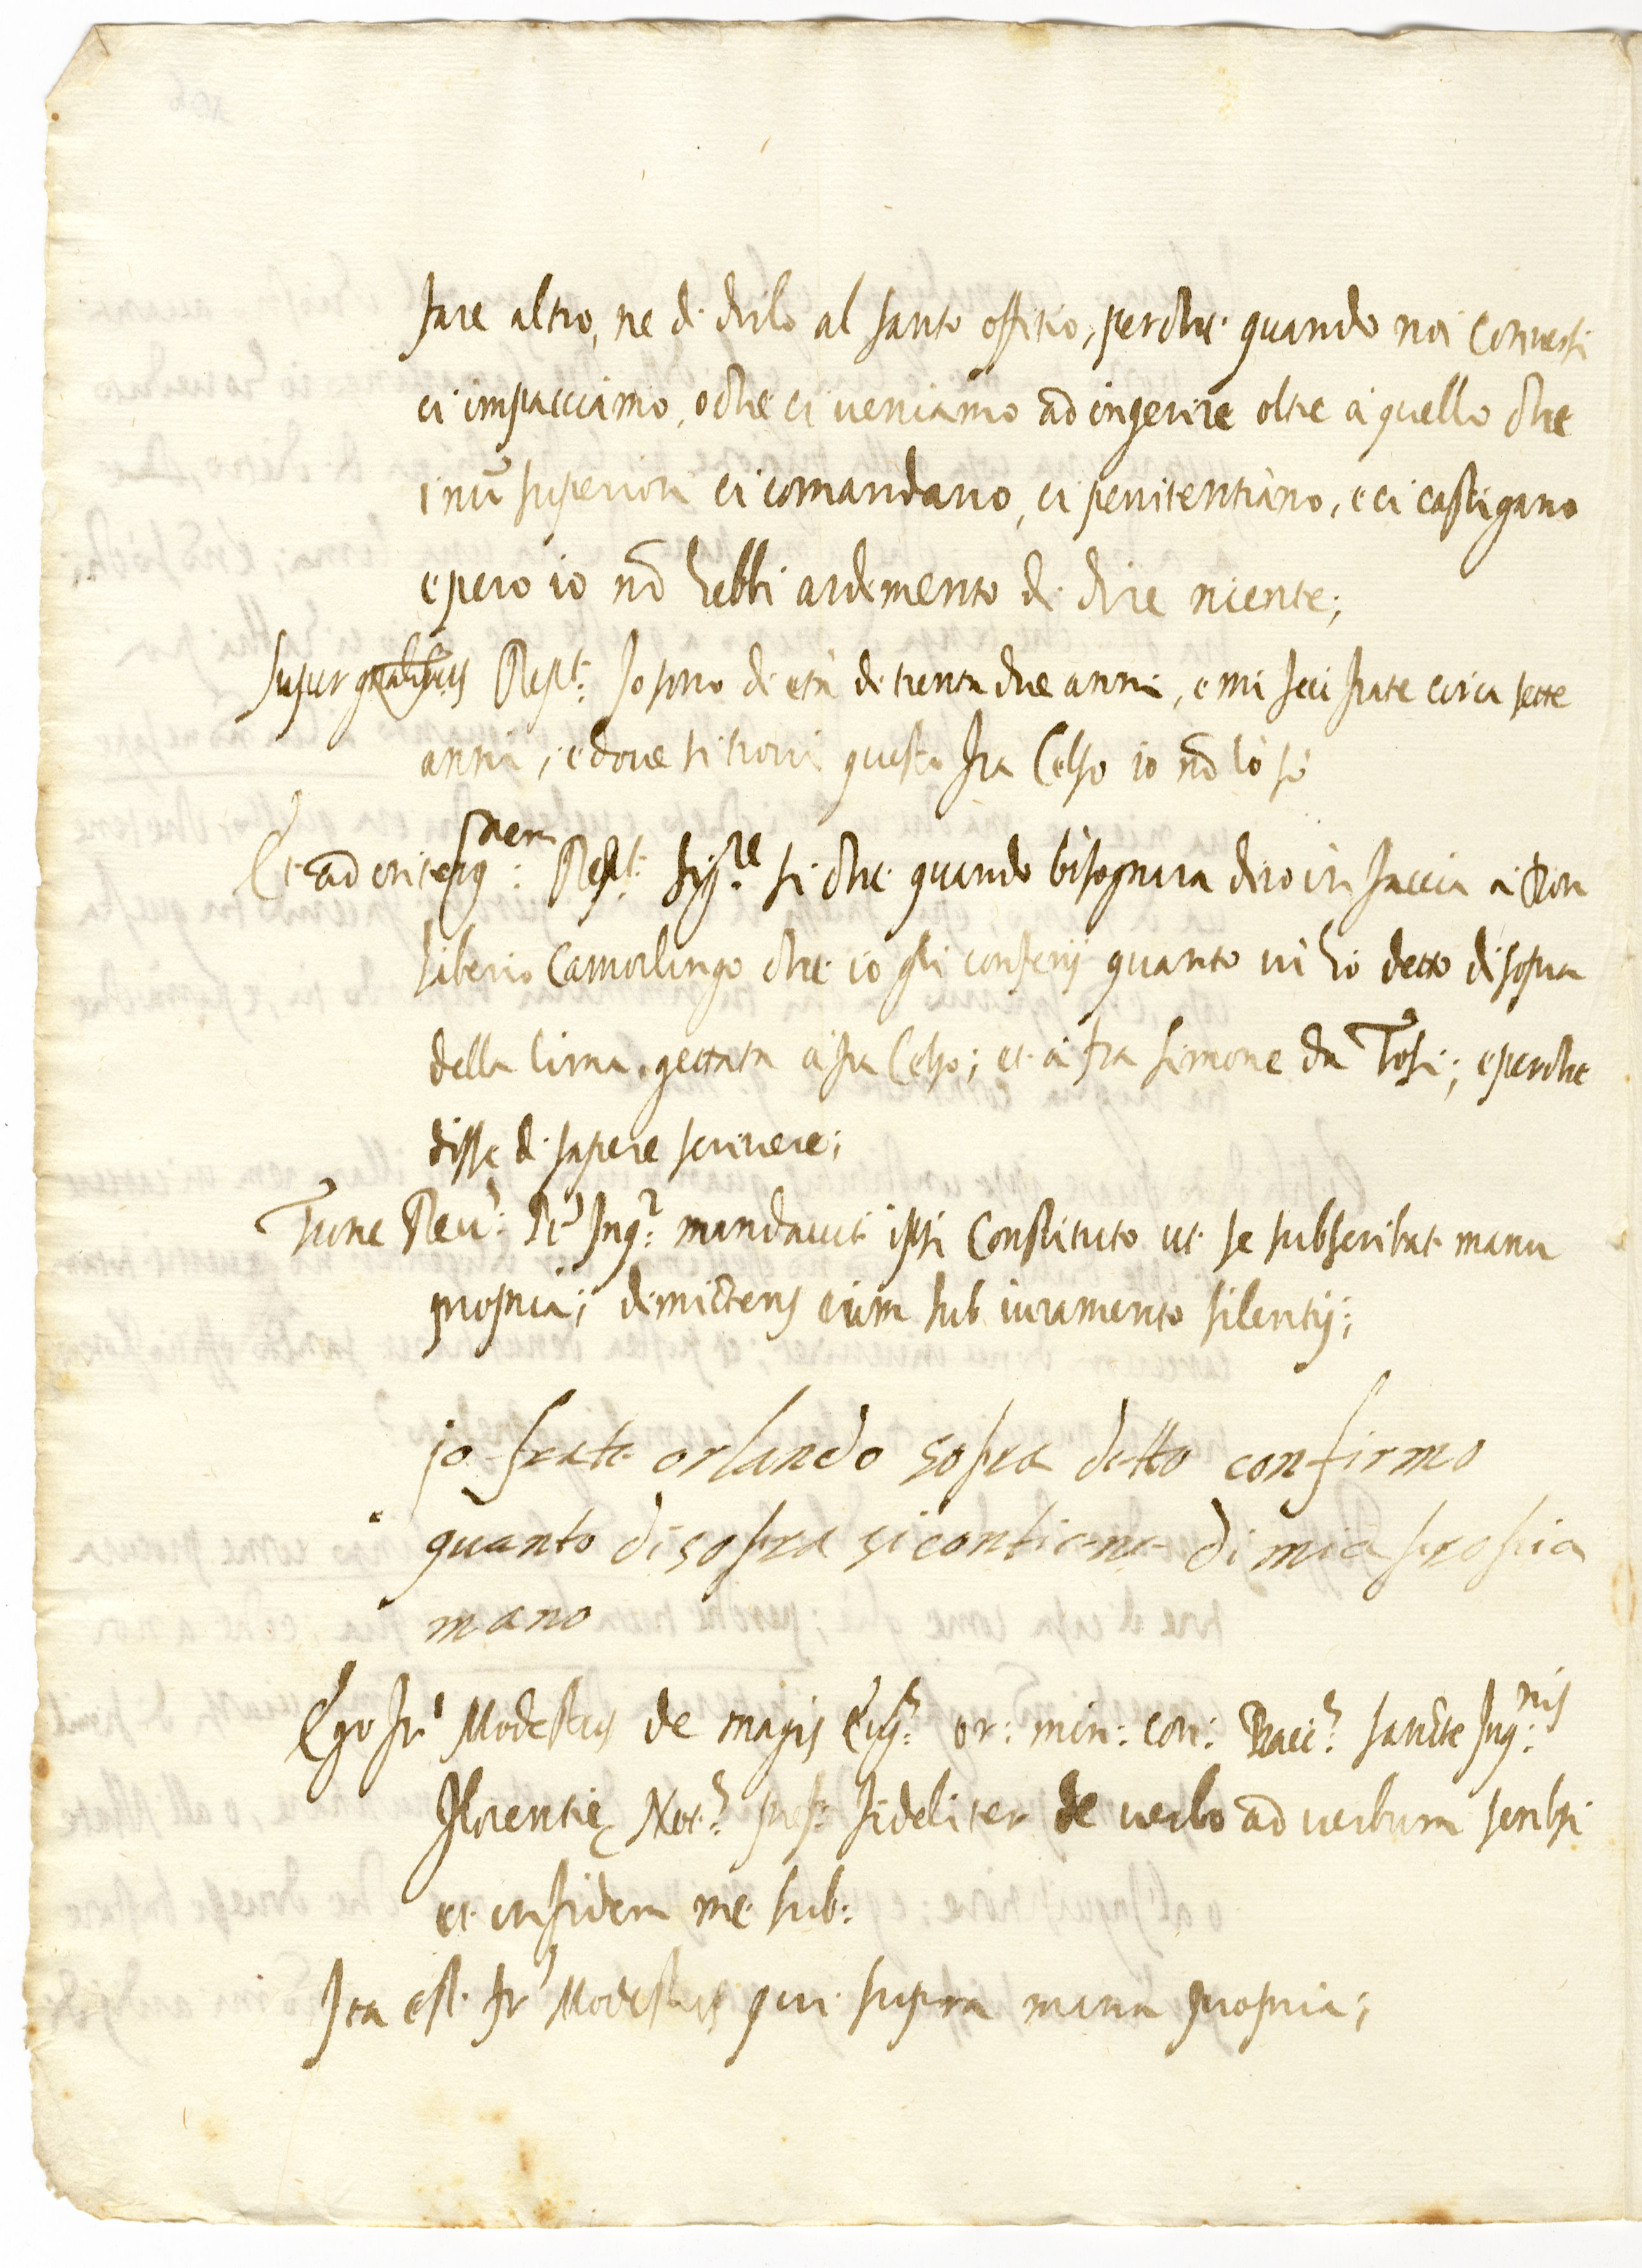 fare altro, ne di dirlo al santo offitio, perche quando noi Conversi
ci impacciamo, o che ci veniamo ad ingerire oltre a quello che
i nrī superiori ci comandano, ci penitentiano, e ci castigano
e pero io nō hebbi ardimento di dire niente;
Super gnalibus Respt: Io sono di età di trenta due anni, e mi feci frate circa sette
anni, e dove si trovi questo fra Celso io nō lo so
Et ad Respt: Sigre si che quando bisognara diro in faccia a Don
Liberio Camorlingo che io gli conferij quanto vi hò detto di sopra
della lima gettata a fra Celso; et a fra Simone da Tosi; e perche
disse di sapere scrivere;
Tunc Reu: Pr Inqr: mandavit ipsi Constituto ut se subscribat manu
propria; dimictens eum sub iuramento silentij;
io frate orlando sopra detto confirmo
quanto di sopra si contiene di mia propia
mano
Ego Fr Modestus de magis or: min: con: sancte Inq:nis
Florentie Not: fideliter de verbo ad verbum scripsi
et in fidem me sub:
Ita est fr Modestus qui supra manu propria;